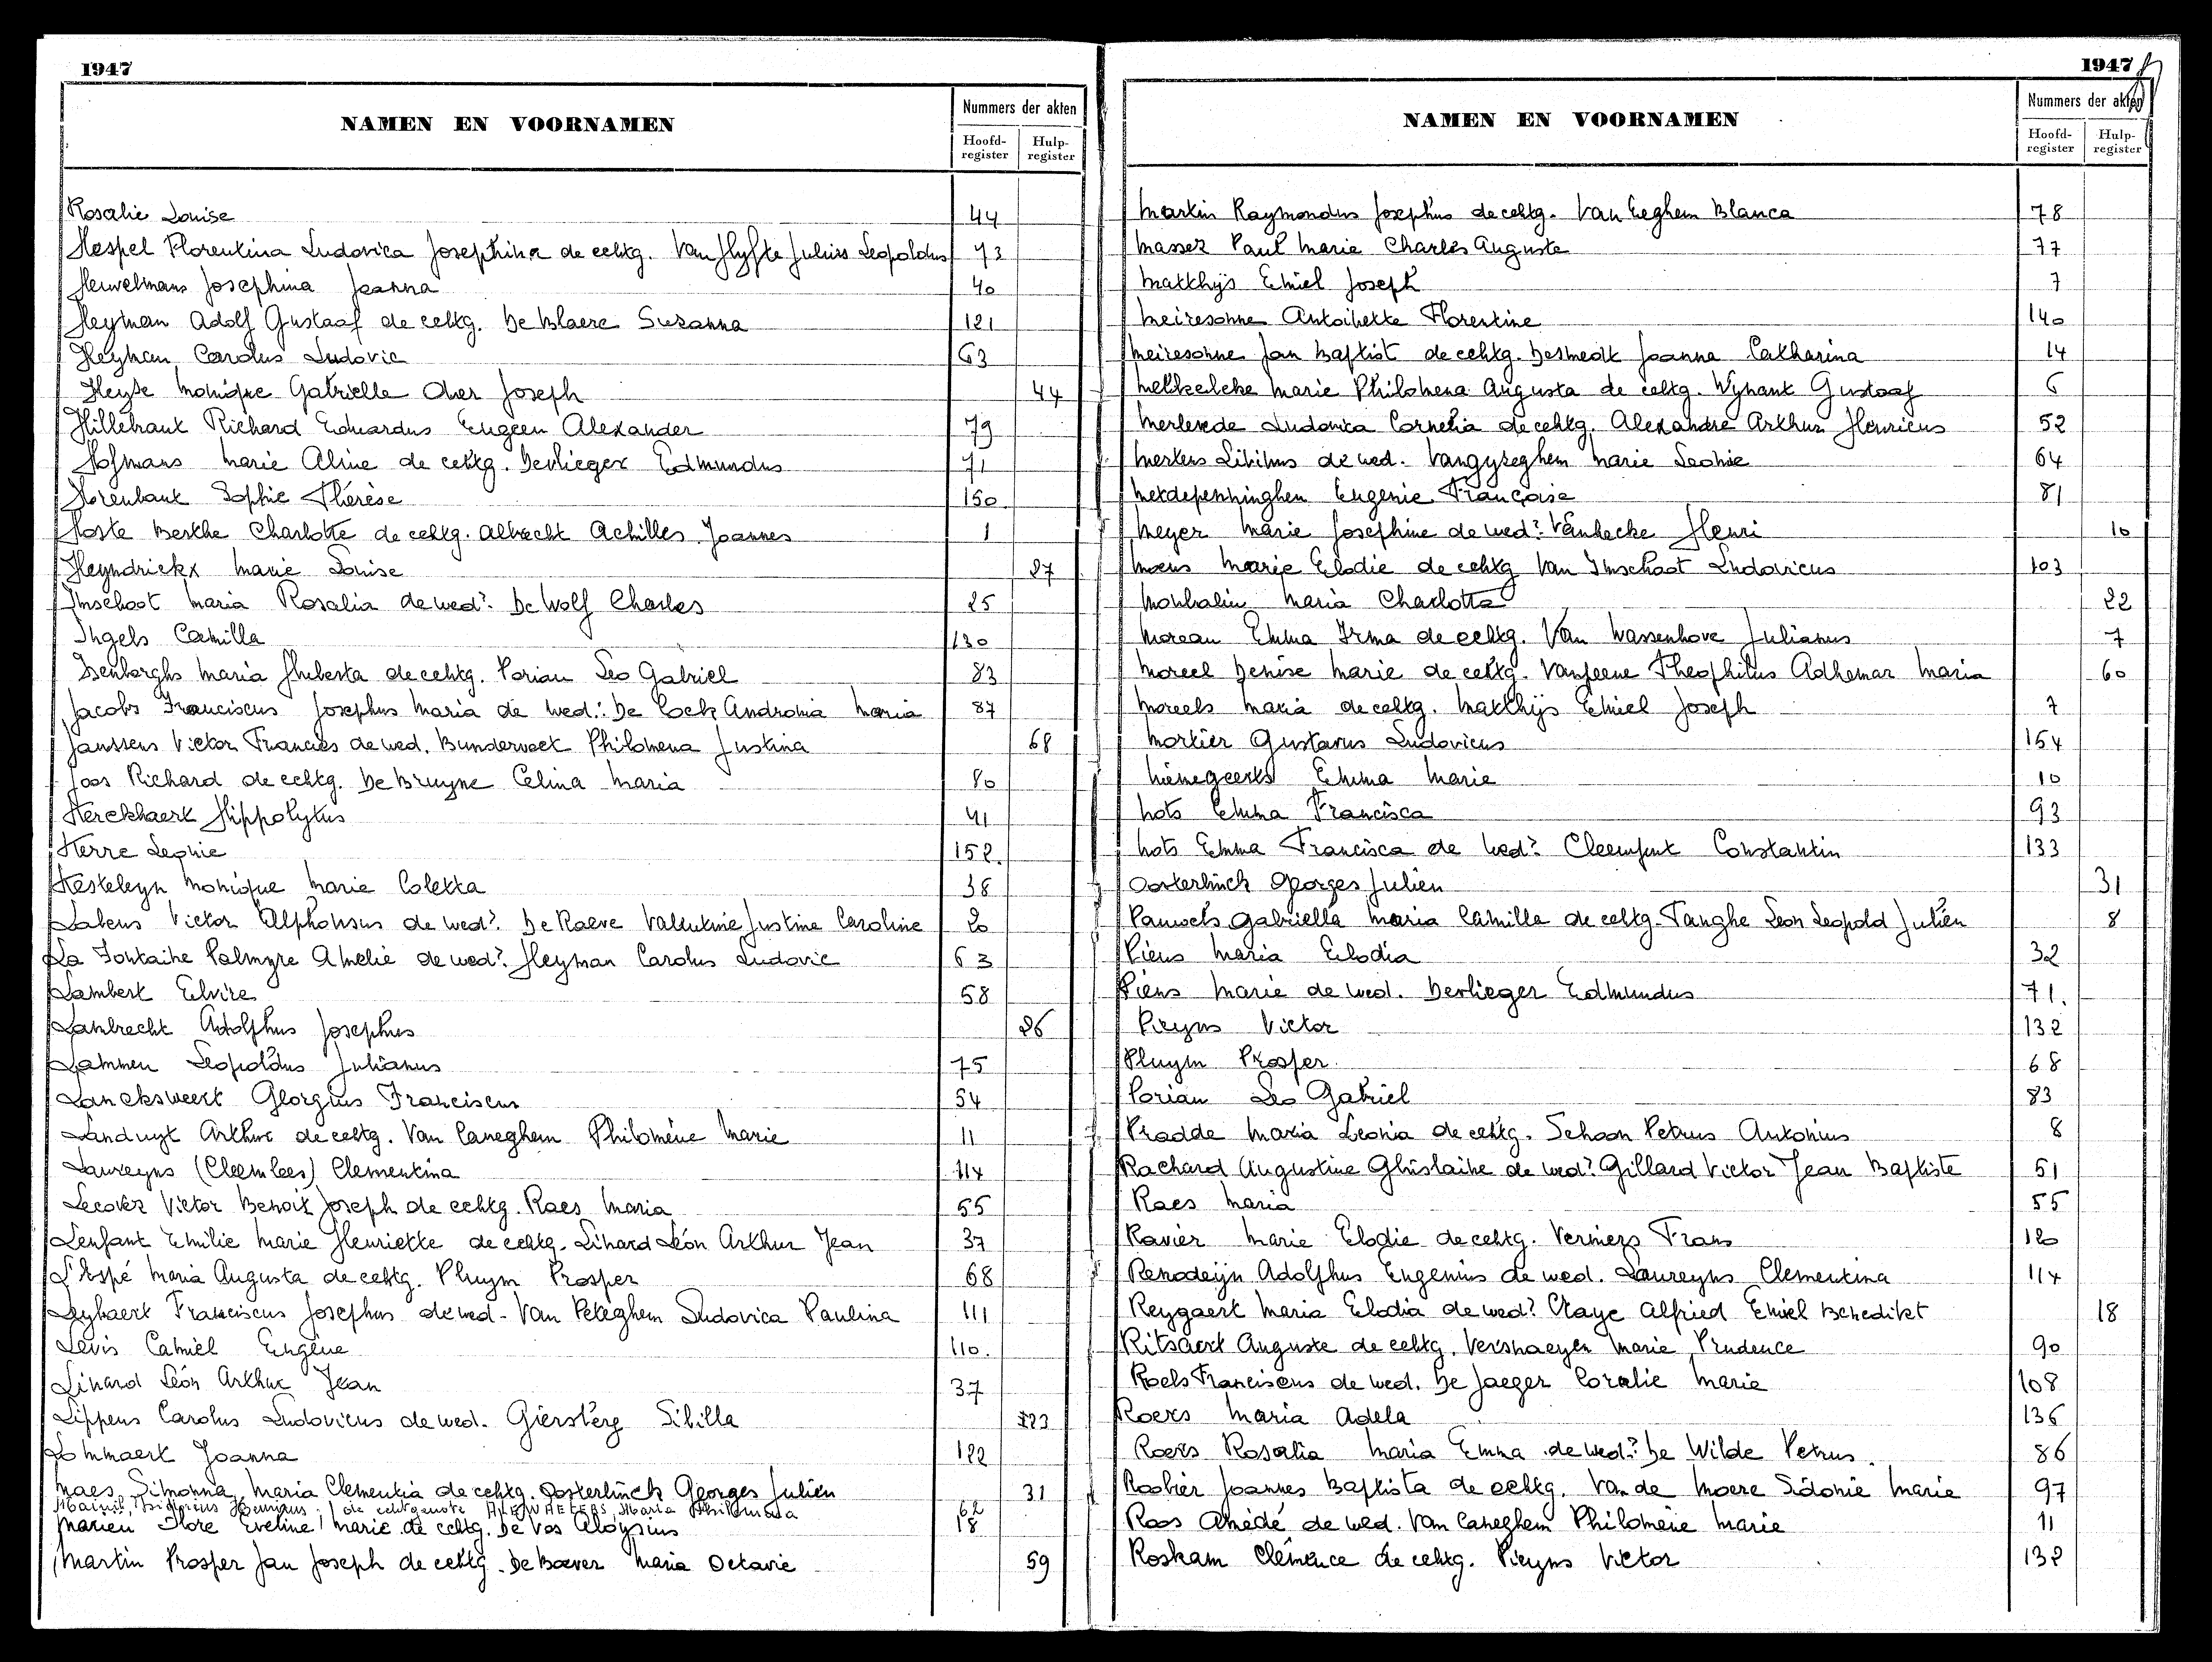 1947
NAMEN EN VOORNAMEN
Nummers der akten
Hoofd-register
Hulp-register
Rosalie Louise 44
Hespel Florentina Ludovica Josephina de echtg. Van Hyfte Julius Leopoldus 73
Heuvelmans Josephina Joanna 40
Heyman Adolf Gustaaf de echtg. De Blaere Suzanna 121
Heyman Carolus Ludovic 63
Heyse Monique Gabrielle Joseph 44
Hillebrant Richard Eduardus Eugeen Alexander 79
Hofmans Marie Aline de echtg. Devlieger Edmundus 71
Horenbant Sophie Thérèse 150
Hoste Berthe Charlotte de echtg. Albrecht Achilles Joannes 1
Heyndrickx Marie Louise 27
Imschoot Maria Rosalia de wede. De Wolf Charles 25
Ingels Camilla 130
Isenborghs Maria Huberta de echtg. Porian Leo Gabriel 83
Jacobs Franciscus Josephus Maria de wed. De Cock Andronia Maria 87
Janssens Victor Francies de wed. Bundervoet Philomena Justina 68
Joos Richard de echtg. De Bruyne Celina Maria 80
Kerckhaert Hippolytus 41
Kerre Leonie 152.
Kesteleyn Monique Marie Coletta 38
Labens Victor Alphonsus de wede. De Raeve Valentine Justine Caroline 20
La Fontaine Palmyre Amelie de wede. Heyman Carolus Ludovic 63
Lambert Elvire 58
Lambrecht Adolphus Josephus 26
Lammen Leopoldus Julianus 75
Lancksweert Georgius Franciscus 54
Landuyt Arthur de echtg. Van Caneghem Philomène Marie 11
Laureyns (Cleemlees) Clementina 114
Lecover Victor Benoit Joseph de echtg. Raes Maria 55
Lenfant Emilie Marie Henriette de echtg. Linard Léon Arthur Jean 37
L'Espé Maria Augusta de echtg. Pluym Prosper 68
Leybaert Franciscus Josephus de wed. Van Peteghem Ludovica Paulina 111
Levis Camiel Eugène 110.
Linard Léon Arthur Jean 37
Lippens Carolus Ludovicus de wed. Giersberg Sibilla 23
Lommaert Joanna 122
Maes Simonna Maria Clementia de echtg. Oosterlinck Georges Julien 31
de echtgenote Maria Philomena 62
Marien Flore Eveline Marie de echtg. De Vos Aloysius 18
Martin Prosper Jan Joseph de echtg. De Baever Maria Octavie 59
1947
NAMEN EN VOORNAMEN
Nummers der akten
Hoofd-register
Hulp-register
Martin Raymondus Josephus de echtg. Van Eeghem Blanca 78
Massez Paul Marie Charles Auguste 77
Matthijs Emiel Joseph 7
Meiresonne Antoinette Florentine 140
Meiresonne Jan Baptist de echtg. Desmedt Joanna Catharina 14
Melkebeke Marie Philomena Augusta de echtg. Wynant Gustaaf 6
Merlevede Ludovica Cornelia de echtg. Alexandre Arthur Henricus 52
Mertens Livinus de wed. Vangyseghem Marie Leonie 64
Metdepenninghen Eugenie Françoise 81
Meyer Marie Josephine de wede. Vanhecke Henri 10
Moens Marie Elodie de echtg Van Imschoot Ludovicus 103
Monbalin Maria Charlotta 22
Moreau Emma Irma de echtg. Van Wassenhove Julianus 7
Moreel Denise Marie de echtg. Vanseene Theophilus Adhemar Maria 60
Moreels Maria de echtg. Matthijs Emiel Joseph 7
Mortier Gustavus Ludovicus 154
Niemegeerts Emma Marie 10
Nots Emma Francisca 93
Nots Emma Francisca de wede. Cleemput Constantin 133
Oosterlinck Georges Julien 31
Pauwels Gabriella Maria Camilla de echtg. Tanghe Leon Leopold Julien 8
Piens Maria Elodia 32
Piens Marie de wed. Devlieger Edmundus 71.
Pieyns Victor 132
Pluym Prosper 68
Porian Leo Gabriel 83
Pradde Maria Leonia de echtg. Schoon Petrus Antonius 8
Rachard Augustine Ghislaine de wede. Gillard Victor Jean Baptiste 51
Raes Maria 55
Ravier Marie Elodie de echtg. Verniers Frans 120
Renodeyn Adolphus Eugenius de wed. Laureyns Clementina 114
Reygaert Maria Elodia de wede. Claye Alfried Emiel Benedikt 18
Ritsaert Auguste de echtg. Vershaeyen Marie Prudence 90
Roels Franciscus de wed. De Jaeger Coralie Marie 108
Roers Maria Adela 136
Roers Rosalia Maria Emma de wede. De Wilde Petrus. 86
Roobier Joannes Baptista de echtg. Van de Moere Sidonie Marie 97
Roos Amédé de wed. Van Caneghem Philomène Marie 11
Roskam Clémence de echtg. Pieyns Victor 132